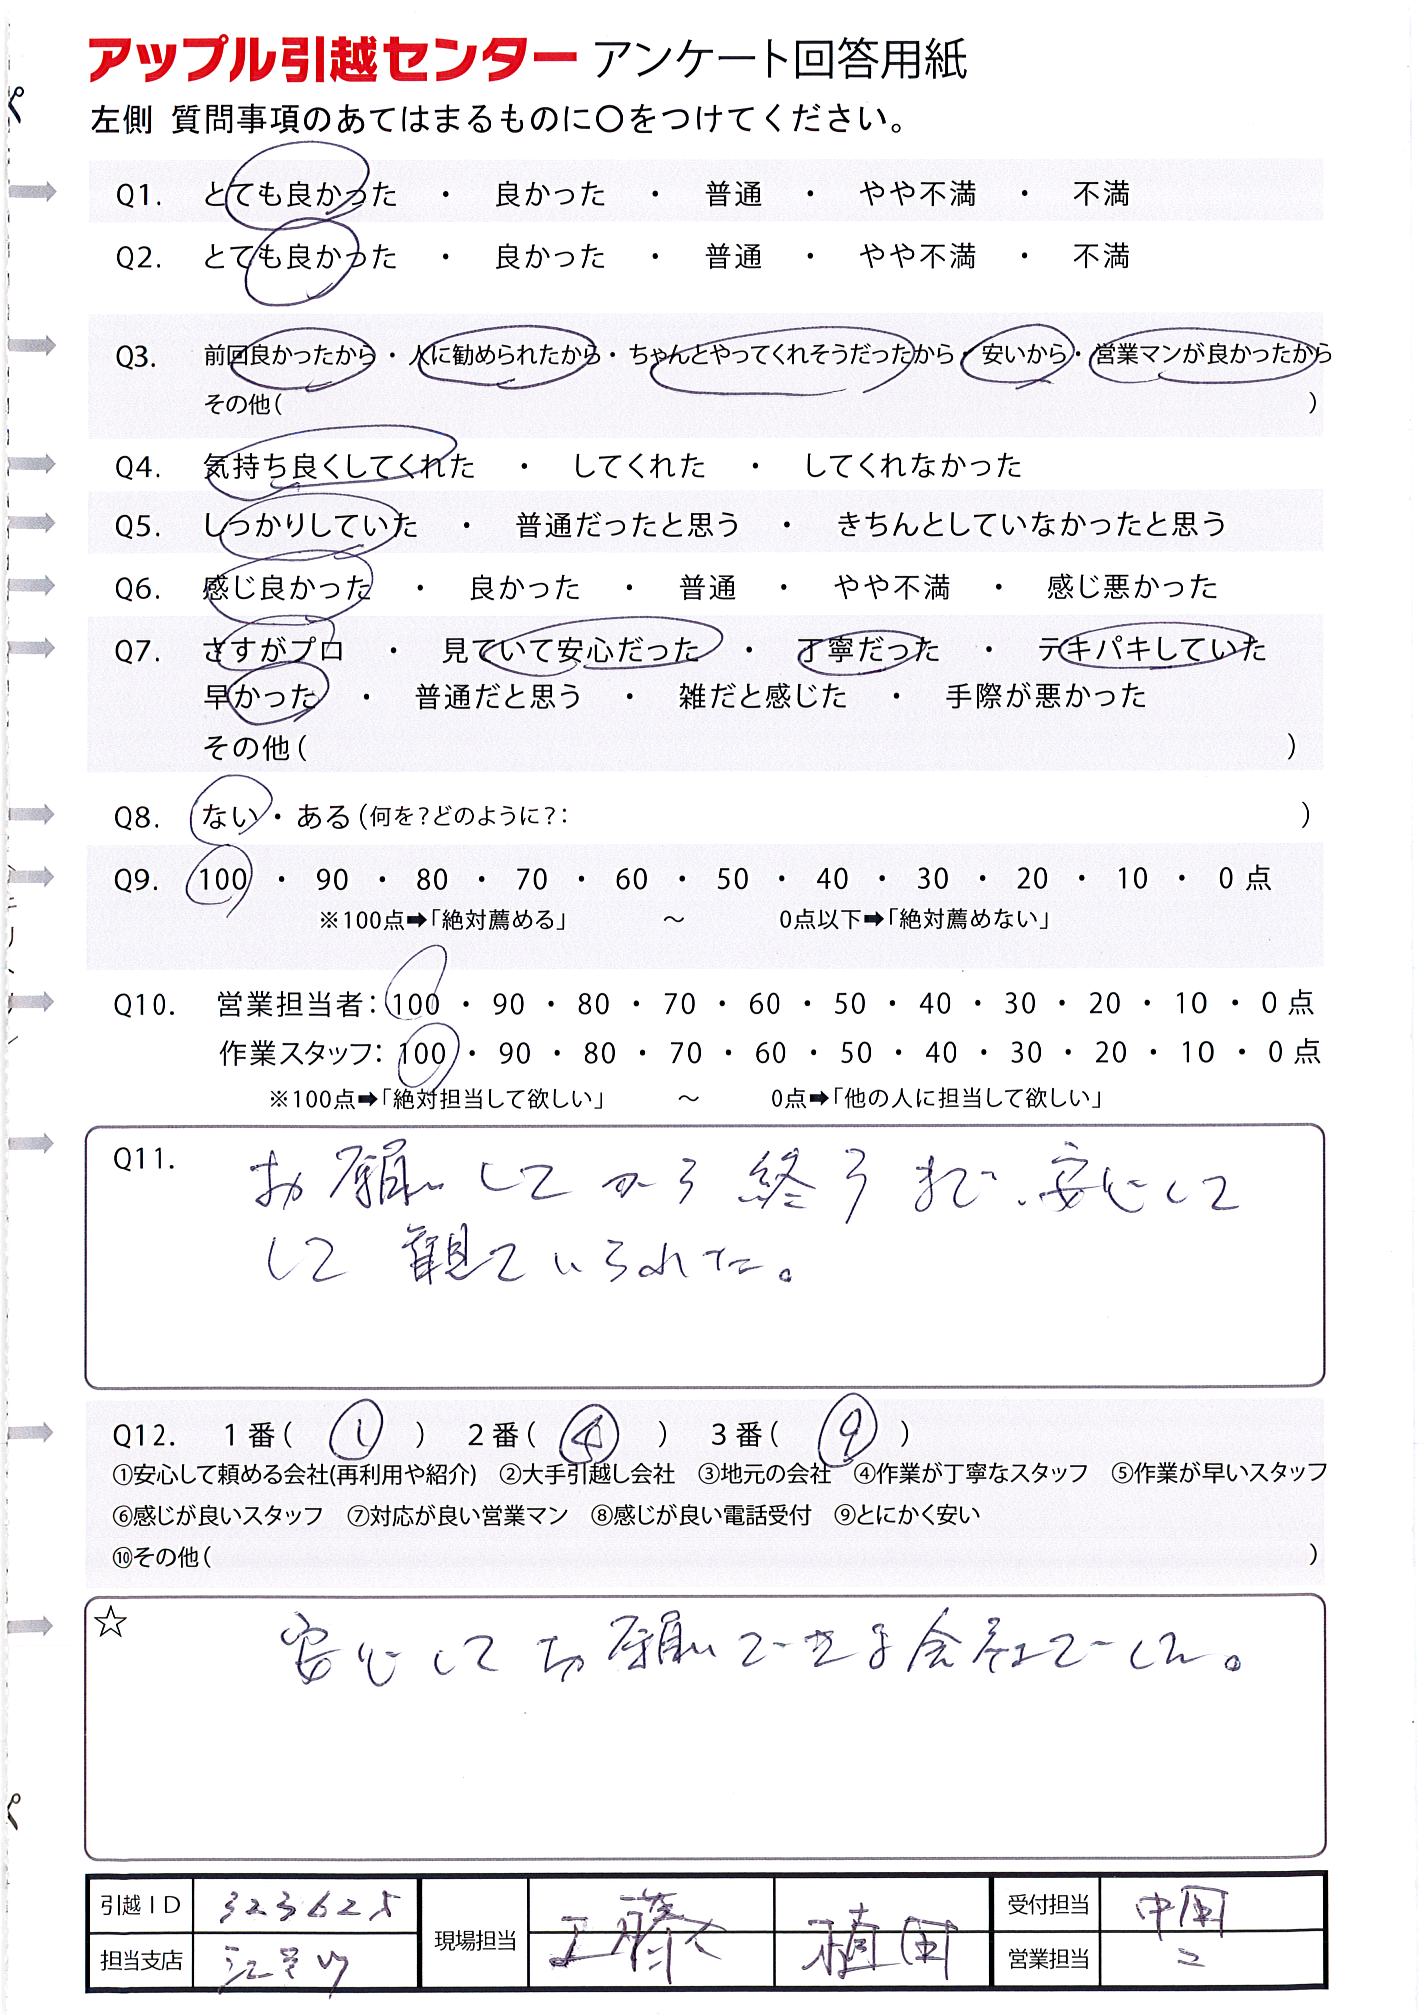 アップル引越センター アンケート回答用紙
左側 質問事項のあてはまるものに〇をつけてください。
Q1. とても良かった ・ 良かった ・ 普通 ・ やや不満 ・ 不満
Q2. とても良かった ・ 良かった ・ 普通 ・ やや不満 ・ 不満
Q3. 前回良かったから・人に勧められたから・ちゃんとやってくれそうだったから・安いから・営業マンが良かったから
その他( )
Q4. 気持ち良くしてくれた ・ してくれた ・ してくれなかった
Q5. しっかりしていた ・ 普通だったと思う ・ きちんとしていなかったと思う
Q6. 感じ良かった ・ 良かった ・ 普通 ・ やや不満 ・ 感じ悪かった
Q7. さすがプロ ・ 見ていて安心だった ・ 丁寧だった ・ テキパキしていた
早かった ・ 普通だと思う ・ 雑だと感じた ・ 手際が悪かった
その他( )
Q8. ない・ある(何を?どのように?: )
Q9. 100 ・ 90 ・ 80 ・ 70 ・ 60 ・ 50 ・ 40 ・ 30 ・ 20 ・ 10 ・ 0 点
※100点➡「絶対薦める」 ～ 0点以下➡「絶対薦めない」
Q10. 営業担当者: 100 ・ 90 ・ 80 ・ 70 ・ 60 ・ 50 ・ 40 ・ 30 ・ 20 ・ 10 ・ 0 点
作業スタッフ: 100 ・ 90 ・ 80 ・ 70 ・ 60 ・ 50 ・ 40 ・ 30 ・ 20 ・ 10 ・ 0 点
※100点➡「絶対担当して欲しい」 ～ 0点➡「他の人に担当して欲しい」
Q11. お願いしてから終るまで、安心して
して観ていられた。
Q12. 1番( ① ) 2番( ④ ) 3番( ⑨ )
①安心して頼める会社(再利用や紹介) ②大手引越し会社 ③地元の会社 ④作業が丁寧なスタッフ ⑤作業が早いスタッフ
⑥感じが良いスタッフ ⑦対応が良い営業マン ⑧感じが良い電話受付 ⑨とにかく安い
⑩その他( )
☆ 安心してお願いできる会社でした。
引越ID 323625 現場担当 工藤 植田 受付担当 中岡
担当支店 江戸川 営業担当